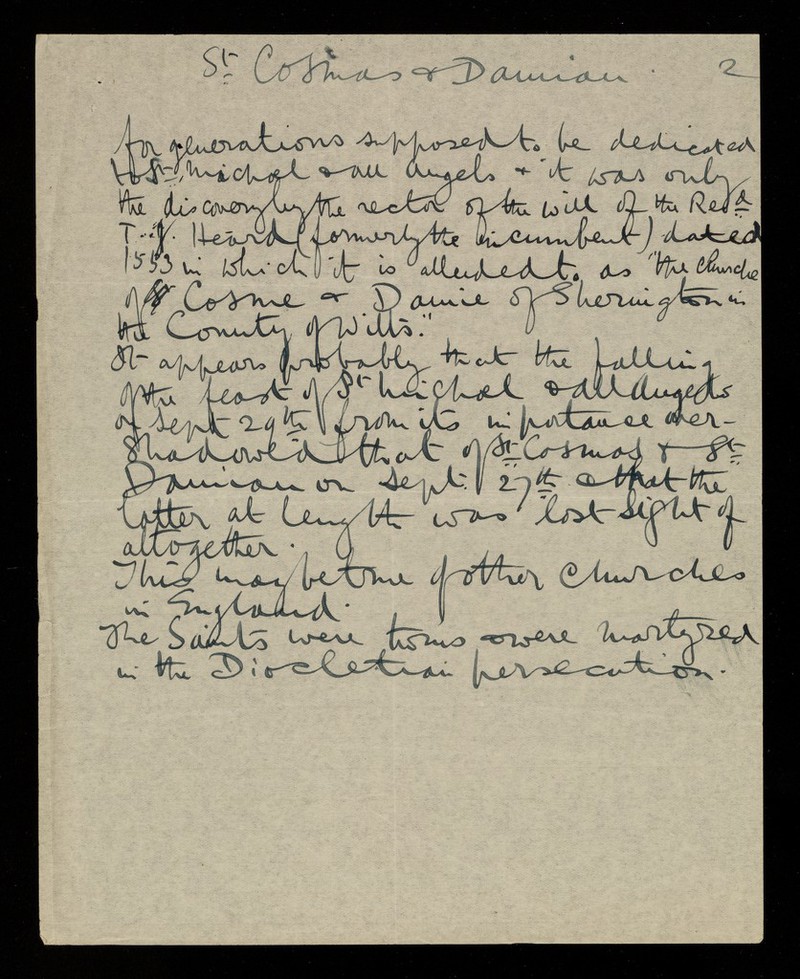 St Cosmas & Damian. 2
for generations supposed to be dedicated
to St Michael & all Angels & it was only
the discovery by the rector of the will of the Revd
T. J. Heard (formerly the incumbent) dated
1553 in which it is alluded to as "the Churche
of St Cosme & Damie of Sherington in
the County of Wilts."
It appears probably that the falling
of the feast of St Michael & all Angels
on Sept 29th from its importance over-
shadowed that of St Cosmas & St
Damian on Sept. 27th & that the
latter at length was lost sight of
altogether.
This may be true of other Churches
in England.
The Saints were twins & were martyred
in the Diocletian persecution.